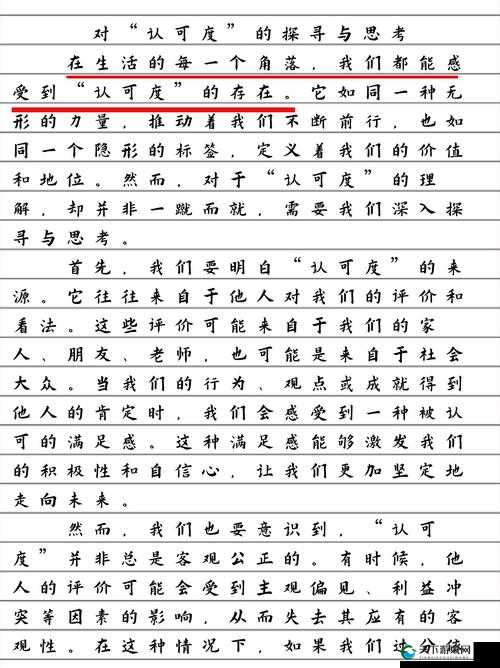 对“认可度”的探寻与思考
在生活的每一个角落，我们都能感
受到“认可度”的存在。它如同一种无
形的力量，推动着我们不断前行，也如
同一个隐形的标签，定义着我们的价值
和地位。然而，对于“认可度”的理
解，却并非一蹴而就，需要我们深入探
寻与思考。
首先，我们要明白“认可度”的来
源。它往往来自于他人对我们的评价和
看法。这些评价可能来自于我们的家
人、朋友、老师，也可能是来自于社会
大众。当我们的行为、观点或成就得到
他人的肯定时，我们会感受到一种被认
可的满足感。这种满足感能够激发我们
的积极性和自信心，让我们更加坚定地
走向未来。
然而，我们也要意识到，“认可
度”并非总是客观公正的。有时候，他
人的评价可能会受到主观偏见、利益冲
突等因素的影响，从而失去其应有的客
观性。在这种情况下，如果我们过分